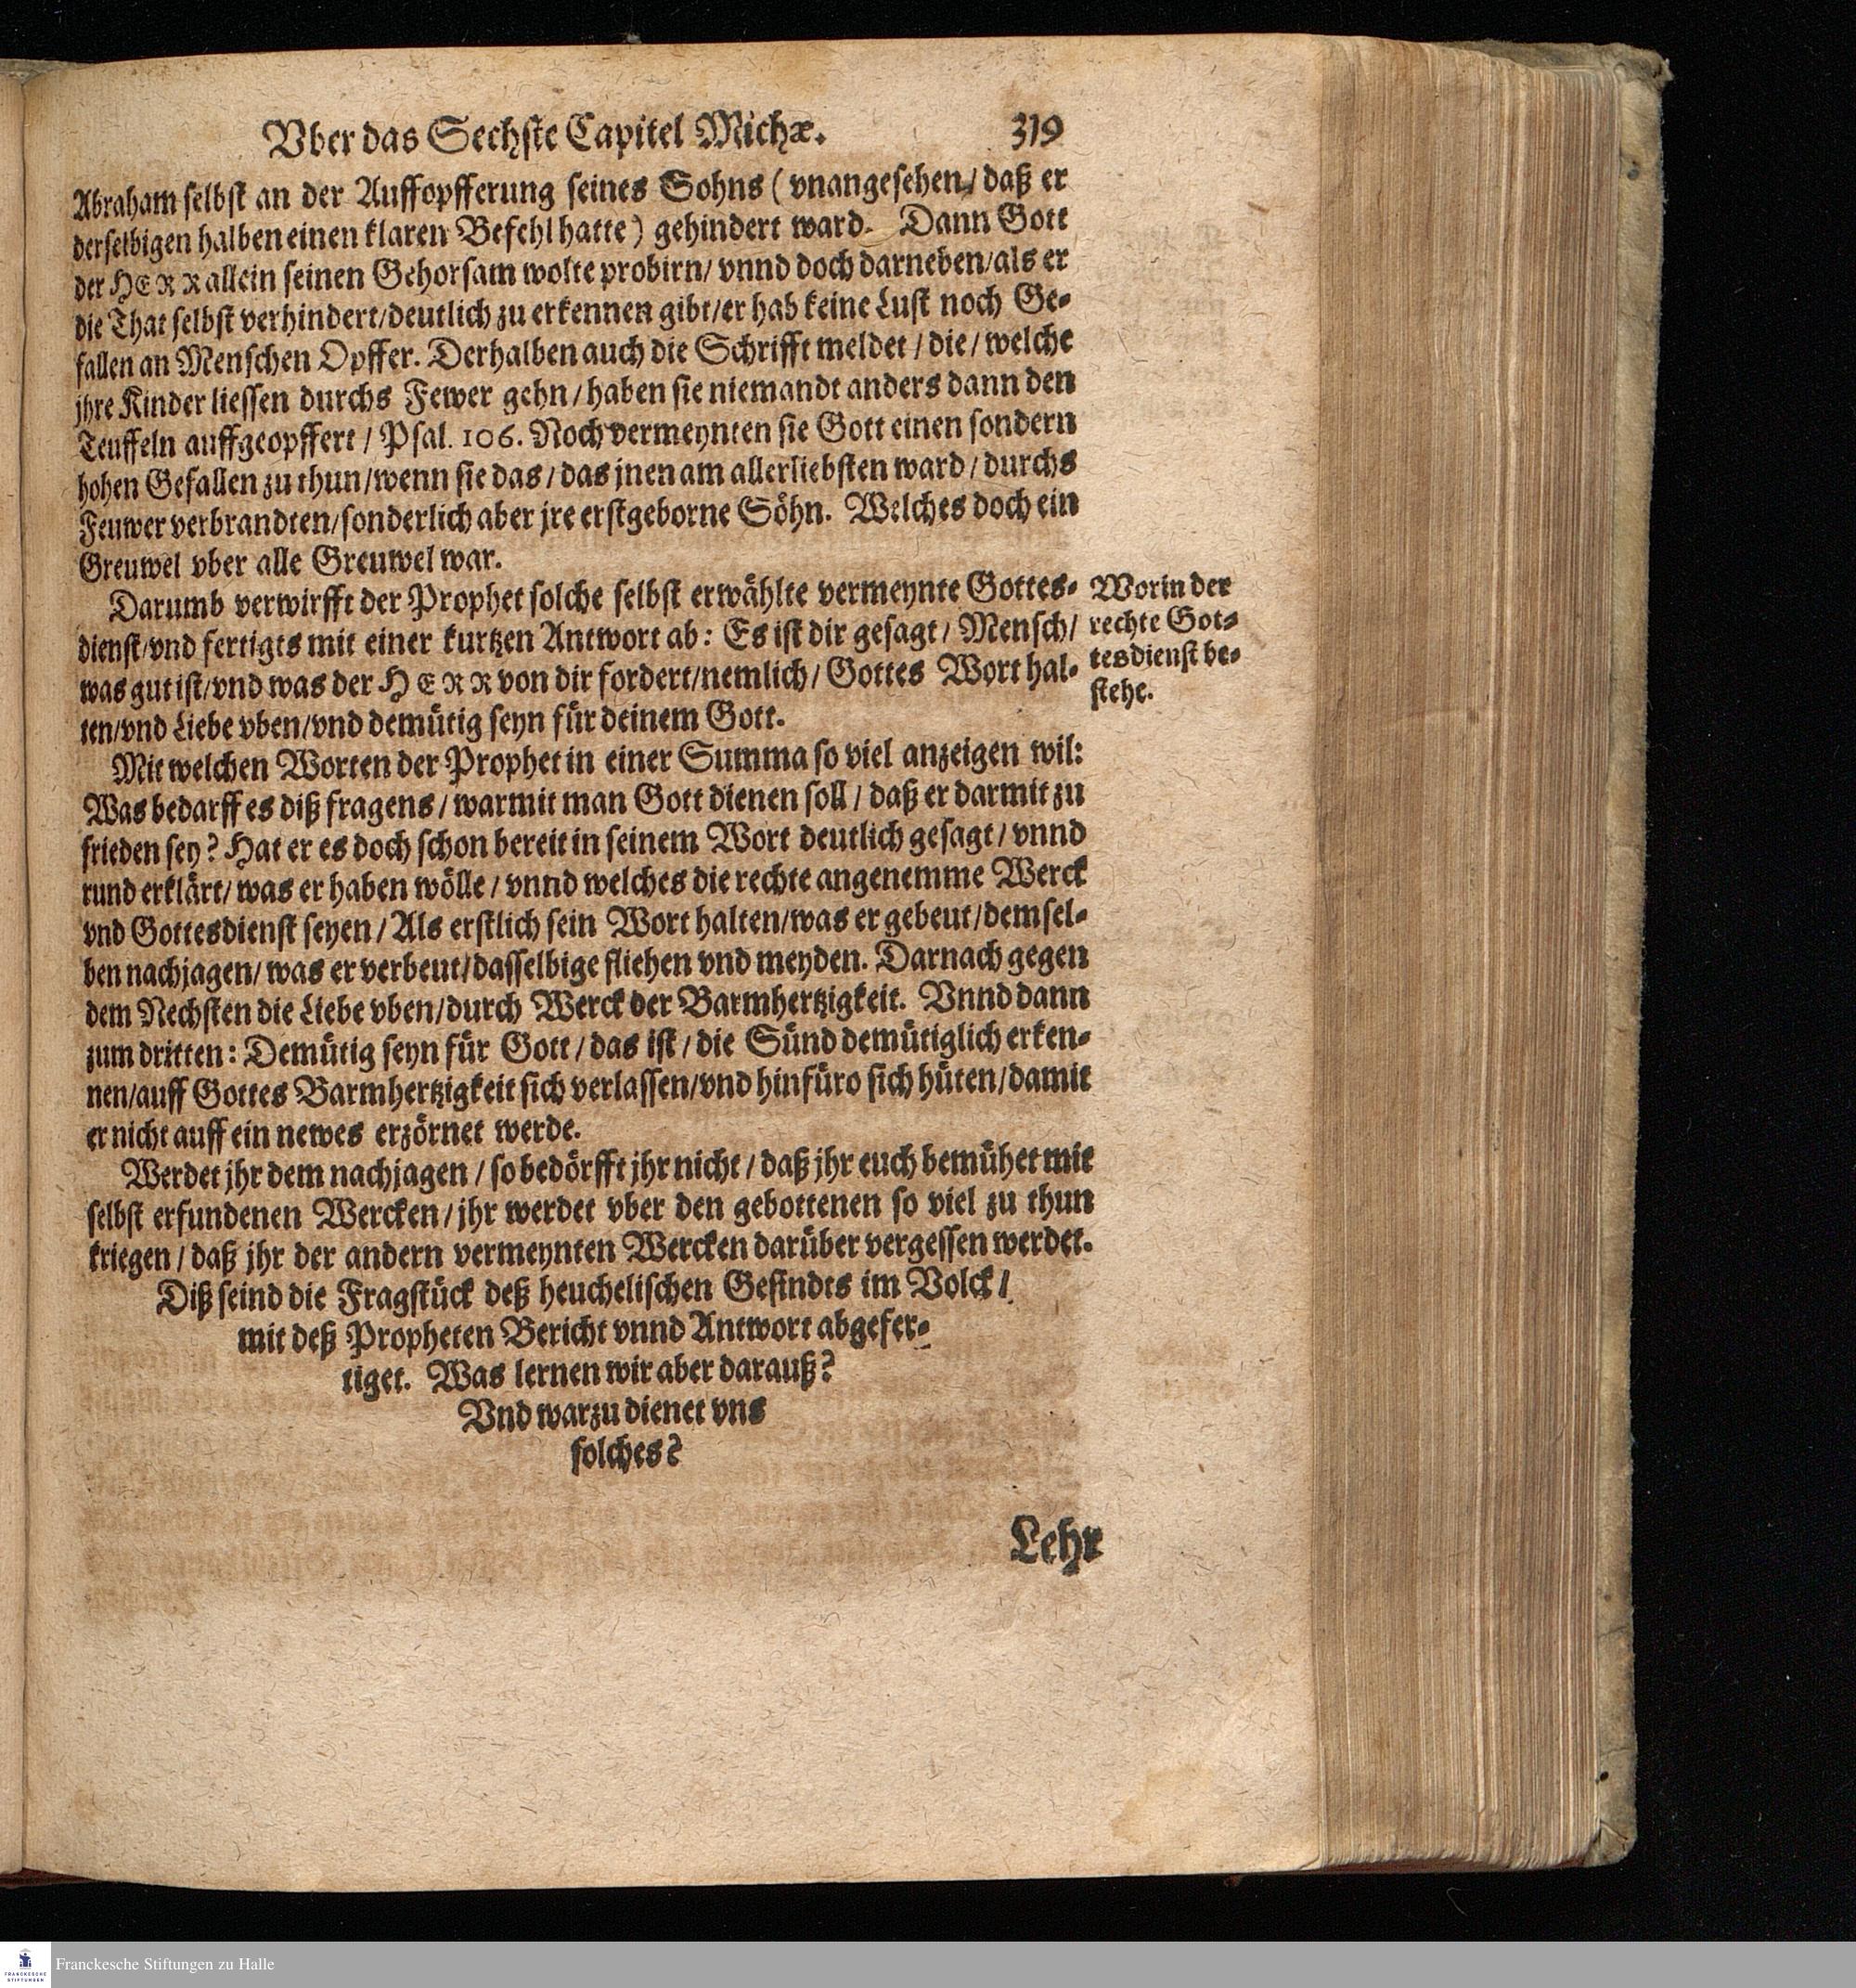 Vber das Sechste Capitel Michæ. 319
Abraham selbst an der Auffopfferung seines Sohns (vnangesehen/ daß er
derselbigen halben einen klaren Befehl hatte) gehindert ward. Dann Gott
der HERR allein seinen Gehorsam wolte probirn/ vnnd doch darneben/als er
die That selbst verhindert/deutlich zu erkennen gibt/er hab keine Lust noch Ge-
fallen an Menschen Opffer. Derhalben auch die Schrifft meldet / die / welche
jhre Kinder liessen durchs Fewer gehn / haben sie niemandt anders dann den
Teuffeln auffgeopffert / Psal. 106. Noch vermeynten sie Gott einen sondern
hohen Gefallen zu thun/wenn sie das / das jnen am allerliebsten ward / durchs
Feuwer verbrandten/sonderlich aber jre erstgeborne Söhn. Welches doch ein
Greuwel vber alle Greuwel war.
Darumb verwirfft der Prophet solche selbst erwählte vermeynte Gottes-
dienst/vnd fertigts mit einer kurtzen Antwort ab: Es ist dir gesagt / Mensch/
was gut ist/vnd was der HERR von dir fordert/nemlich / Gottes Wort hal-
ten/vnd Liebe vben/vnd demütig seyn für deinem Gott.
Worin der
rechte Got-
tesdienst be-
stehe.
Mit welchen Worten der Prophet in einer Summa so viel anzeigen wil:
Was bedarff es diß fragens / warmit man Gott dienen soll / daß er darmit zu
frieden sey? Hat er es doch schon bereit in seinem Wort deutlich gesagt / vnnd
rund erklärt/ was er haben wölle / vnnd welches die rechte angenemme Werck
vnd Gottesdienst seyen / Als erstlich sein Wort halten/was er gebeut/demsel-
ben nachjagen/ was er verbeut/dasselbige fliehen vnd meyden. Darnach gegen
dem Nechsten die Liebe vben/durch Werck der Barmhertzigkeit. Vnnd dann
zum dritten: Demütig seyn für Gott / das ist / die Sünd demütiglich erken-
nen/auff Gottes Barmhertzigkeit sich verlassen/vnd hinfüro sich hüten/damit
er nicht auff ein newes erzörnet werde.
Werdet jhr dem nachjagen / so bedörfft jhr nicht / daß jhr euch bemühet mit
selbst erfundenen Wercken / jhr werdet vber den gebottenen so viel zu thun
kriegen / daß jhr der andern vermeynten Wercken darüber vergessen werdet.
Diß seind die Fragstück deß heuchelischen Gesindts im Volck /
mit deß Propheten Bericht vnnd Antwort abgefer-
tiget. Was lernen wir aber darauß?
Vnd warzu dienet vns
solches?
Lehr
FRANCKESCHE
STIFTUNGEN
Franckesche Stiftungen zu Halle